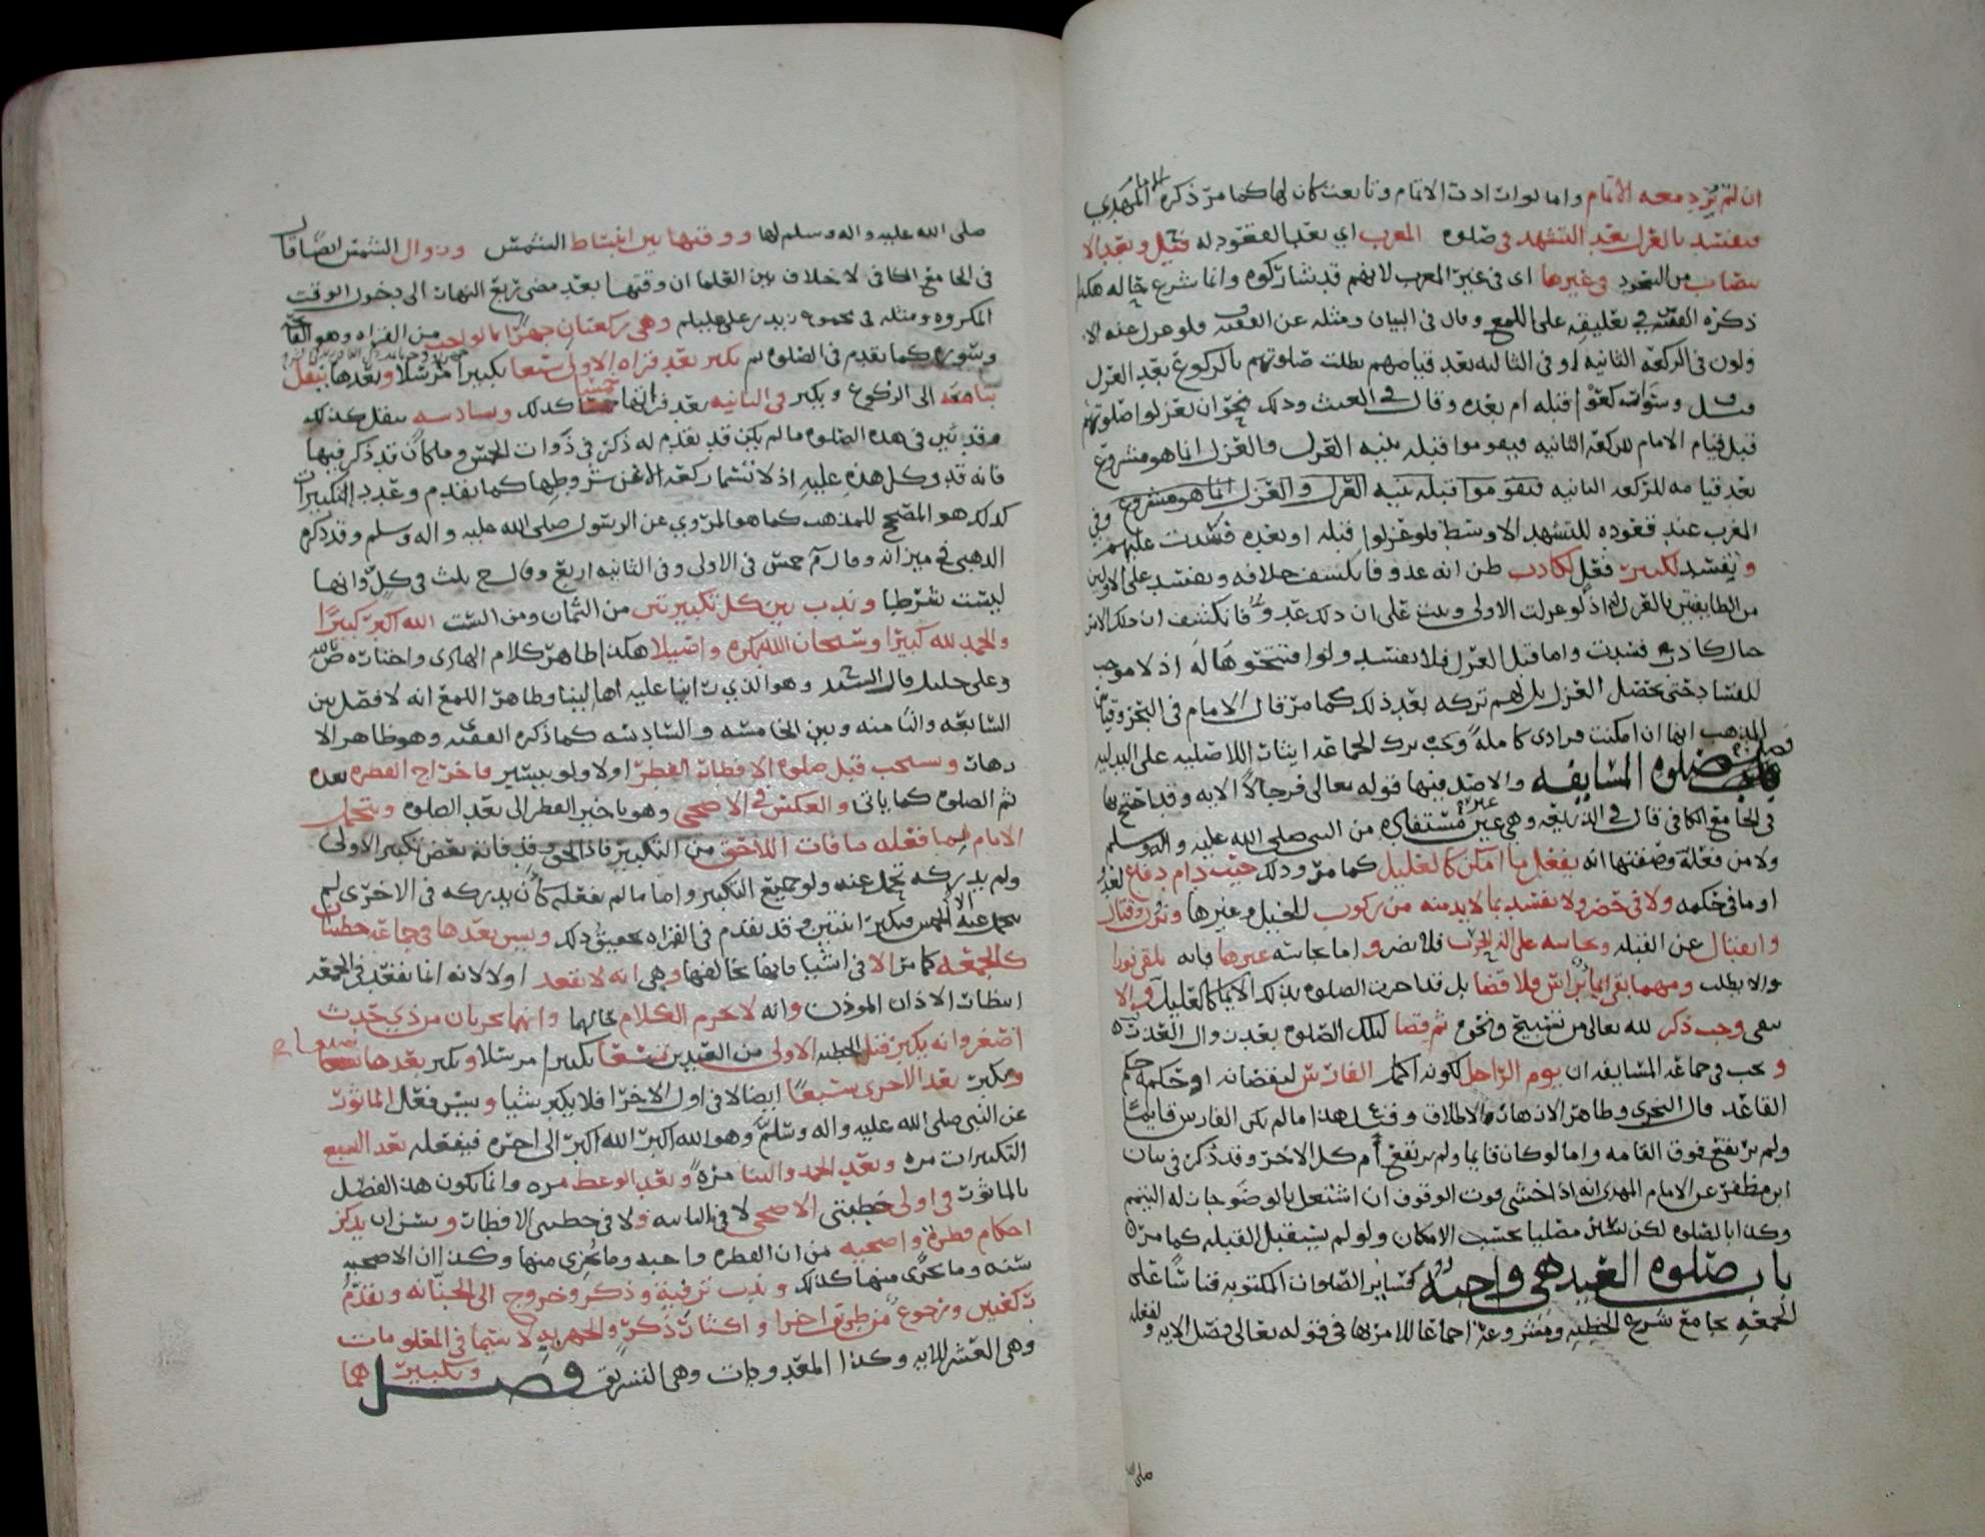 ان لم يزد معه الاتمام واما لو ارادت الاتمام وتابعت كان لها كما مر ذكره الامام المهدي
فتفسد بالعزل بعد التشهد في صلوة المغرب اي بعد القعود له قيل وبعد الا
نتصاب من السجود في غيرها اى في غير المغرب لانهم قد شاركوه وانما شرع حاله هكذا
ذكره الفقيه في تعليقه على اللمع وقال في البيان ومثله عن الفقيه فلو عزل عنه الا
ولون في الركعة الثانيه او في الثالثه بعد قيامهم بطلت صلوتهم بالركوع بعد العزل
وسواء ركعوا قبله ام بعده وقال في الغيث وذلك نحو ان يعزلوا صلوتهم
قبل قيام الامام للركعه الثانيه فيقوموا قبله بنيه العزل والعزل انما هو مشروع
بعد قيامه للركعه الثانيه فيقوموا قبله بنيه العزل والعزل انما هو مشروع وفي
المغرب عند قعوده للتشهد الاوسط فلو عزلوا قبله او بعده فسدت عليهم
وتفسد لكبير فعل لكاذب ظن انه عدو فانكشف خلافه وتفسد على الاولين
من الطايفتين بالعزل اذ لو عزلت الاولى وبنت على ان ذلك عدو فانكشف ان ذلك الامر
حال كاذب فسدت واما قبل العزل فلا تفسد ولو افتتحوها له اذ لا موجب
للفساد حتى يحصل العزل بل لهم تركه بعد ذلك كما مر قال الامام في البحر وقياس
المذهب انها ان امكنت فرادى كاملة وجب ترك الجماعه ايثارا للاصليه على البدليه
فصل في صلوة المسايفه والاصل فيها قوله تعالى فرجالا الايه وقد احتج بها
في الجامع الكافي قال في الذريعه وهي غير مستفاده من النبي صلى الله عليه واله وسلم
ولا من فعله وصفتها انه يفعل ما امكن كالعليل كما مر وذلك حيث دام دفاع لعدو
او ما في حكمه ولا في حضر ولا تفسد بما لا بد منه من ركوب للخيل وغيرها ونزول وقتال
وانفتال عن القبله ونجاسه على اله الحرب فلا تضر واما نجاسه غيرها فانه يلقى فورا
والا بطلت ومهما بقى ايما براس فلا قضا بل قد اجزت الصلوه بذلك الايما كالعليل والا
يبقى وجب ذكر لله تعالى من تسبيح ونحوه ثم قضا لتلك الصلوة بعد زوال العذر
وتجب في جماعة المسايفه ان يوم الراجل لكونه اكمل الفارس لنقصانه او حكمه حكم
القاعد قال النجري وظاهر الازهار الاطلاق وقيل هذا ما لم يكن الفارس قايما
ولم يرتفع فوق القامه واما لو كان قايما ولم يرتفع أم كل الاخر وقد ذكر في بيان
ابن مظفر عن الامام المهدي انه اذا خشي فوت الوقوف ان اشتغل بالوضو جاز له التيمم
وكذا بالصلوه لكن يسير مصليا بحسب الامكان ولو لم يستقبل القبله كما مر
باب صلوة العيد هي واجبه كساير الصلوات المكتوبه قياسا على
الجمعه بجامع شرع الخطبه ومشروعه اجماعا للامر بها في قوله تعالى فصل الايه ولفعله
صلى الله
صلى الله عليه واله وسلم لها ووقتها بين انبساط الشمس وزوال الشمس ايضا قال
في الجامع الكافي لا خلاف بين العلما ان وقتها بعد مضي ربع النهار الى دخول الوقت
المكروه ومثله في مجموع زيد بن على عليلم وهي ركعتان جهرا بالواجب من القراه وهو الفاتحه
وسوره كما تقدم في الصلوه ثم يكبر بعد قراه الاولى سبعا تكبيرا مرسلا وبعدها ينقل
بثامنه الى الركوع ويكبر في الثانيه بعد قراتها خمسا كذلك وسادسه ينقل كذلك
وقد بين في هذه الصلوه ما لم يكن قد تقدم له ذكر في ذوات الخمس وما كان قد ذكر فيها
فانه قد وكل هذه عليه اذ لا تسمى ركعه الا عن شروطها كما تقدم وعدد التكبيرات
كذلك هو المصحح للمذهب كما هو المروي عن الرسول صلى الله عليه واله وسلم وقد ذكره
الذهبي في ميزانه وقال م خمس في الاولى وفي الثانيه اربع وقال ح ثلث في كل وانها
ليست شرطا وندب بين كل تكبيرتين من الثمان ومن الست الله اكبر كبيرا
والحمد لله كثيرا وسبحان الله بكره واصيلا هكذا ظاهر كلام الهادى واختاره ص بالله
وعلى خليل قال السيد وهو الذي راينا عليه اهالينا وظاهر اللمع انه لا فصل بين
السابعه والثامنه وبين الخامسه والسادسه كما ذكره الفقيه وهو ظاهر الا
زهار ويستحب قبل صلوة الافطار الفطر اولا ولو بيسير فاخراج الفطره بعده
ثم الصلوه كما ياتي والعكس في الاضحى وهو تاخير الفطر الى بعد الصلوه ويتحمل
الامام فيما فعله ما فات اللاحق من التكبير فاذا لحق وقد فاته بعض تكبير الاولى
ولم يدركه تحمل عنه ولو جميع التكبير واما ما لم يفعله كأن يدركه في الاخرى لم
يتحمل عنه الا الخمس فيكبر اثنتين وقد تقدم في القراه تحقيق ذلك ويسن بعدها في جماعه خطبتان
كالجمعه كما مر الا في اشيا فانها تخالفها وهي انه لا يقعد اولا لانه انما يقعد في الجمعه
انتظار الاذان الموذن وانه لا يحرم الكلام حالهما وانهما تجزيان من ذي حدث
اصغر وانه يكبر قبل الخطبه الاولى من العيدين تسعا تكبيرا مرسلا ويكبر بعدها سبعا
ويكبر بعد الاخرى سبعا ايضا لا في اول الاخرا فلا يكبر شيا ويسن فعل الماثور
عن النبي صلى الله عليه واله وسلم وهو الله اكبر الله اكبر الى اخره فيفعله بعد السبع
التكبيرات مره وبعد الحمد والثنا مرة وبعد الوعظ مره وانما يكون هذا الفصل
بالماثور في اولى خطبتي الاضحى لا في الثانيه ولا في خطبتي الافطار ويسن ان يذكر
احكام فطرة واضحيه من ان الفطره واجبه وما يجزى منها وكذا ان الاضحيه
سنه وما يجزى منها كذلك وندب ترفيه وذكر وخروج الى الجبانه وتقدم
ركعتين ورجوع من طريق اخرا واكثار ذكر والجهر به لا سيما في المعلومات
وهي العشر للايه وكذا المعدودات وهي التشريق فصل وتكبير هما